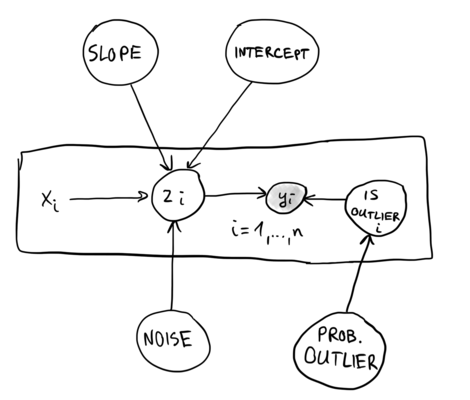 SLOPE
INTERCEPT
Xi
Zi
yi
IS
OUTLIER
i
i=1,...,n
NOISE
PROB.
OUTLIER